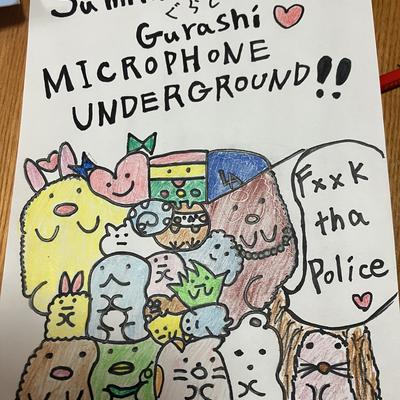 ぐらし
Gurashi
MICROPHONE
UNDERGROUND!!
LA
Fxxk
tha
Police